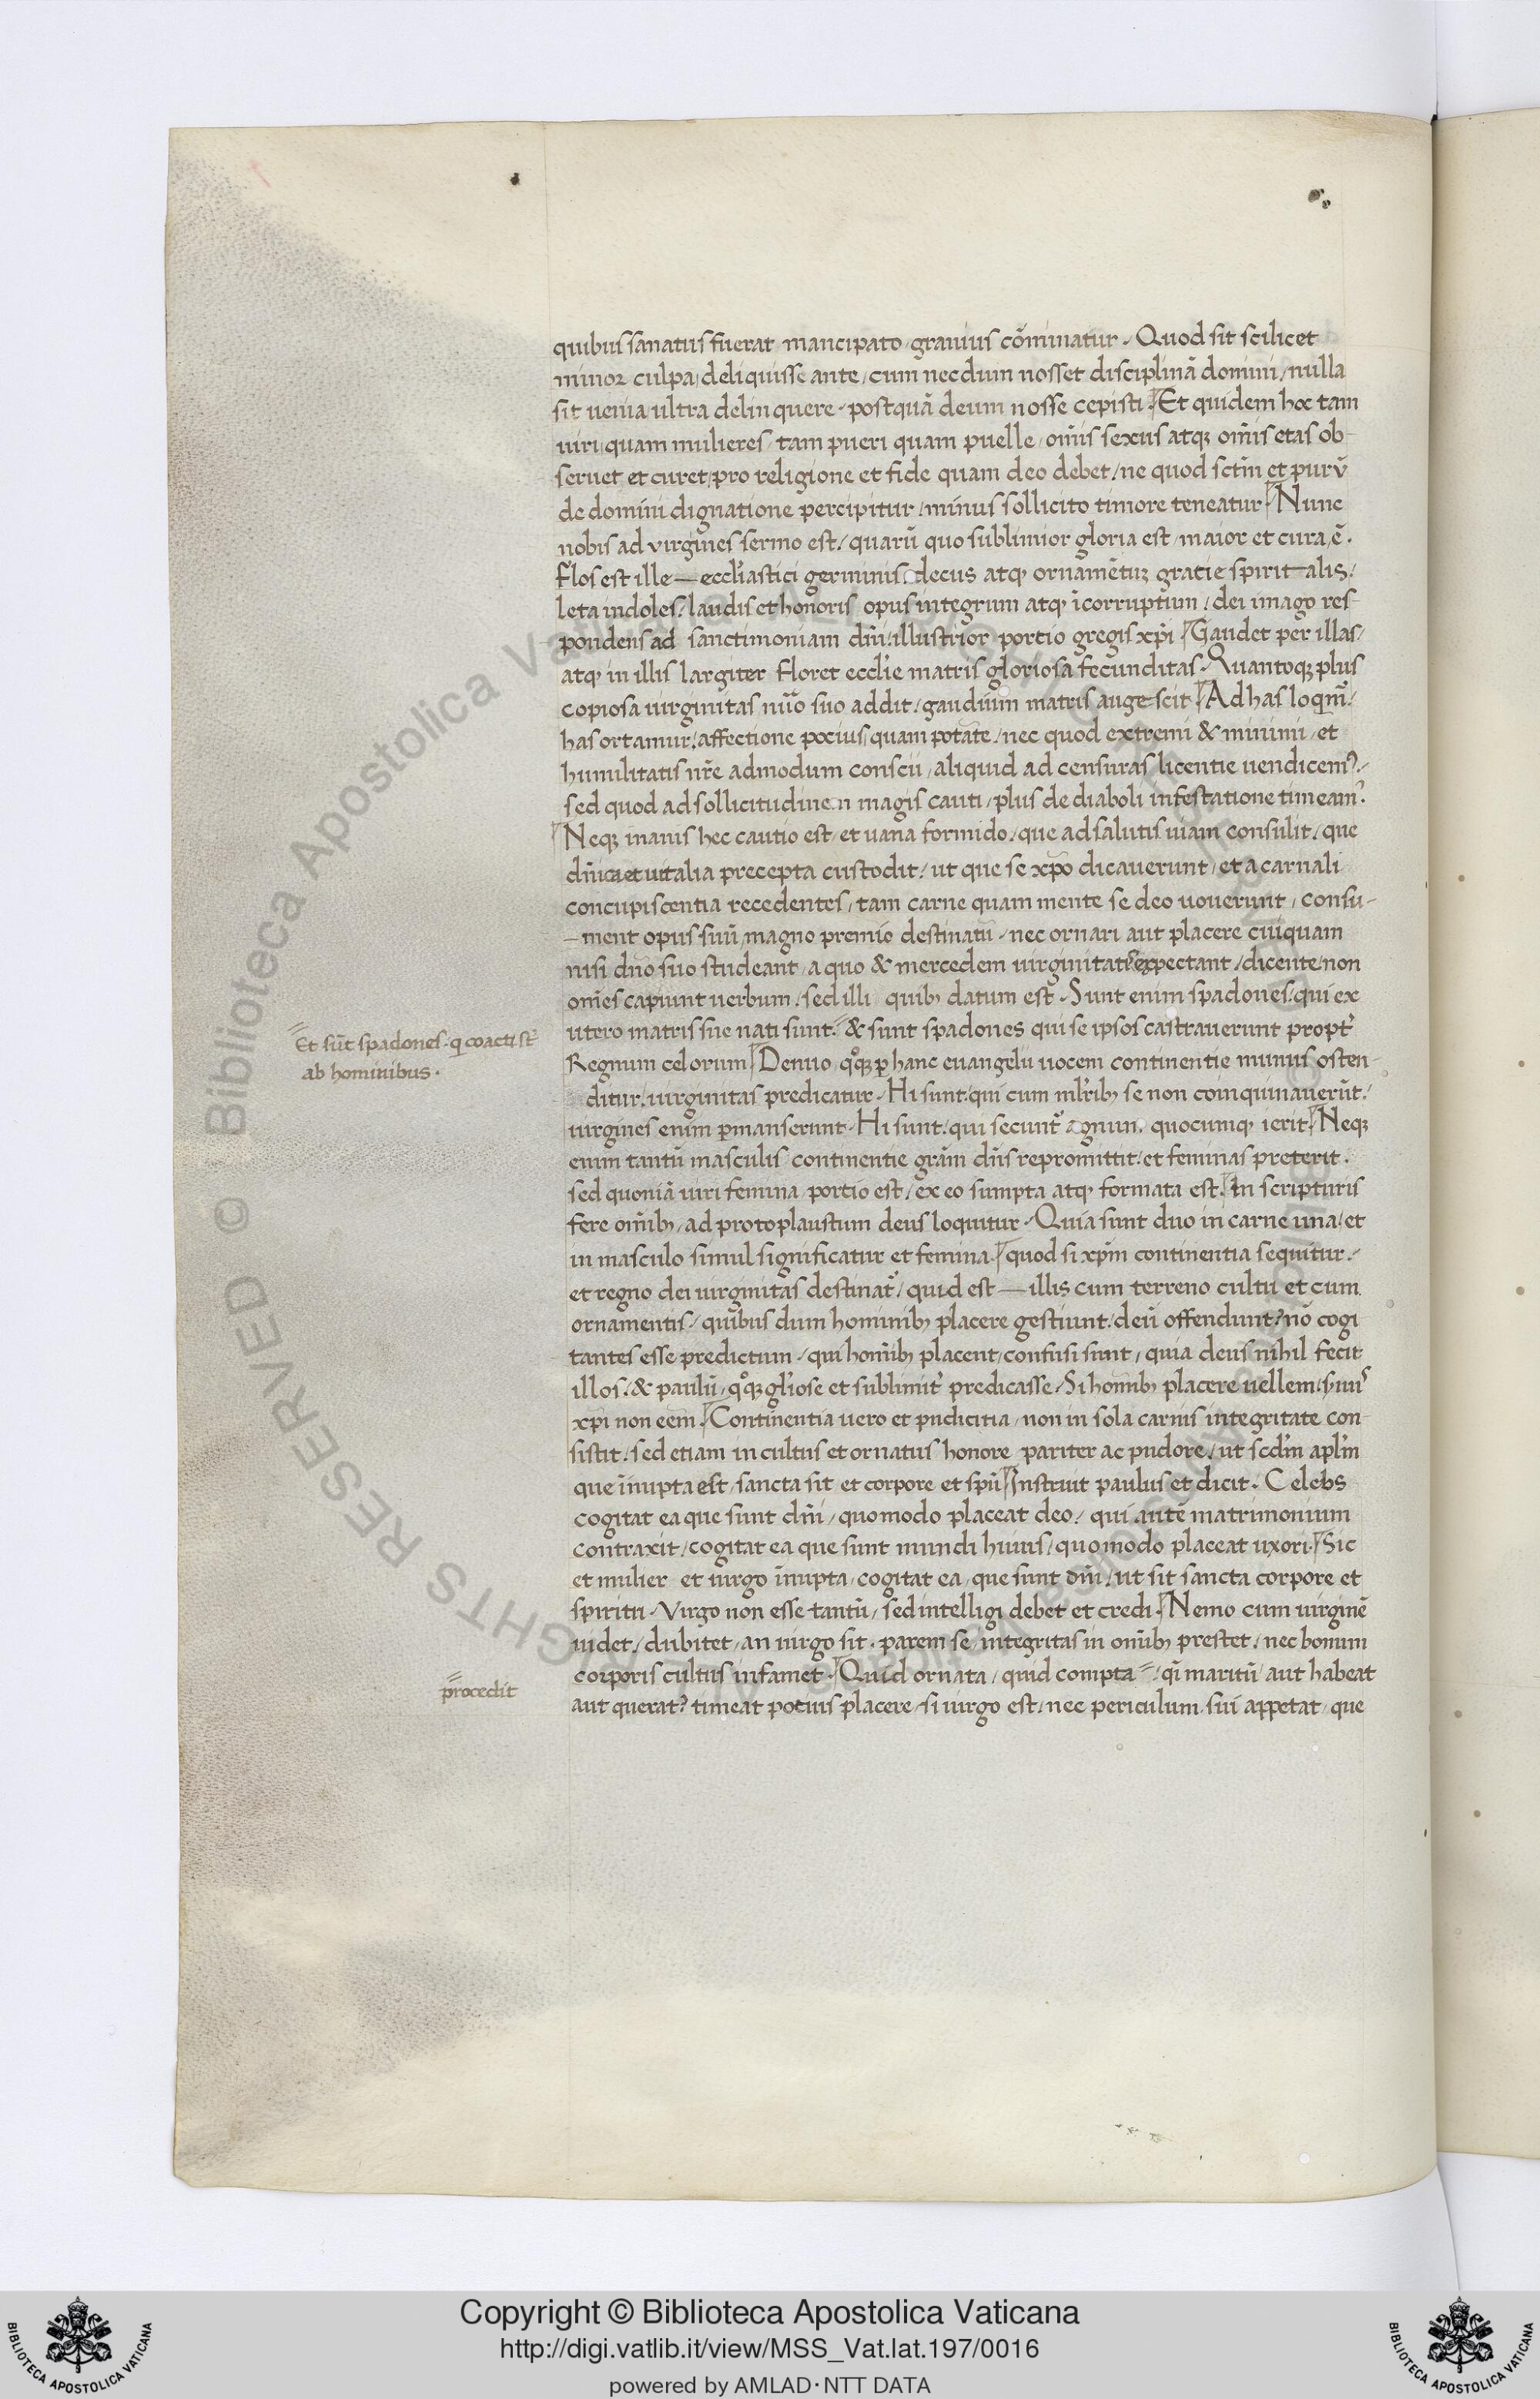 quibus sanatus fuerat mancipato / grauius cōminatur . Quod sit scilicet
minor culpa / deliquisse ante / cum necdum nosset disciplinā domini / nulla
sit uenia ultra delinquere . postquā deum nosse cepisti . Et quidem hoc tam
uiri quam mulieres / tam pueri quam puelle / om̄is sexus atq; om̄is etas ob-
seruet et curet / pro religione et fide quam deo debet / ne quod sctm̄ et purū
de domini dignatione percipitur / minus sollicito timore teneatur . Nunc
nobis ad virgines sermo est / quarū quo sublimior gloria est / maior et cura ē .
Flos est ille — eccl'iastici germinis decus atq; ornamētuz gratie spiritalis /
leta indoles / laudis et honoris opus integrum atq; īcorruptum / dei imago res-
pondens ad sanctimoniam dn̄i / illustrior portio gregis xp̄i . Gaudet per illas /
atq; in illis largiter floret eccl'ie matris gloriosa fecunditas . Quantoq; plus
copiosa uirginitas nūo suo addit / gaudium matris augescit . Ad has loqm̄r /
has ortamur / affectione pocius quam potāte / nec quod extremi & minimi / et
humilitatis nr̄e admodum conscii / aliquid ad censuras licentie uendicem9 /
sed quod ad sollicitudinem magis cauti / plus de diaboli infestatione timeam9 .
Neq; inanis hec cautio est / et uana formido / que ad salutis uiam consulit / que
dn̄ica et uitalia precepta custodit / ut que se xp̄o dicauerunt / et a carnali
concupiscentia recedentes / tam carne quam mente se deo uouerunt / consu-
- ment opus suū / magno premio destinatū . nec ornari aut placere cuiquam
nisi dn̄o suo studeant / a quo & mercedem uirginitatis expectant / dicente / non
om̄es capiunt uerbum / sed illi quib; datum est . Sunt enim spadones / qui ex
utero matris sue nati sunt . // & sunt spadones qui se ipsos castrauerunt propt'
Regnum celorum . Denuo qoq; p hanc euangelii uocem continentie munus osten-
ditur / uirginitas predicatur . Hi sunt / qui cum ml'rib; se non coinquinauerūt /
uirgines enim pmanserunt . Hi sunt / qui secunt' agnum quocumq; ierit . Neq;
enim tantū masculis continentie grām dn̄s repromittit / et feminas preterit .
sed quoniā uiri femina portio est / ex eo sumpta atq; formata est . In scripturis
fere om̄ib; / ad protoplaustum deus loquitur . Quia sunt duo in carne una / et
in masculo simul significatur et femina . quod si xp̄m continentia sequitur /
et regno dei uirginitas destinat' / quid est — illis cum terreno cultu et cum
ornamentis / quibus dum hominib; placere gestiunt / deū offendunt ? nō cogi
tantes esse predictum . qui homib; placent / confusi sunt / quia deus nihil fecit
illos / & paulū qoq; gl'iose et sublimit' predicasse . Si homib; placere uellem / seruus
xp̄i non eem̄ . Continentia uero et pudicitia / non in sola carnis integritate con-
sistit / sed etiam in cultus et ornatus honore pariter ac pudore / ut scd'm apl'm
que īnupta est / sancta sit et corpore et spū . Instruit paulus et dicit . Celebs
cogitat ea que sunt dn̄i / quomodo placeat deo / qui autē matrimonium
contraxit / cogitat ea que sunt mundi huius / quomodo placeat uxori . Sic
et mulier et uirgo īnupta / cogitat ea / que sunt dn̄i / ut sit sancta corpore et
spiritu . Virgo non esse tantū / sed intelligi debet et credi . Nemo cum uirginē
uidet / dubitet / an uirgo sit . parem se integritas in om̄ib; prestet / nec bonum
corporis cultus infamet . Quid ornata / quid compta // qi maritū / aut habeat
aut querat ? timeat potius placere / si uirgo est / nec periculum sui appetat / que
// Et sūt spadones . q coacti st̄
ab hominibus .
// procedit
© Biblioteca Apostolica Vaticana
RIGHTS RESERVED
Copyright © Biblioteca Apostolica Vaticana
http://digi.vatlib.it/view/MSS_Vat.lat.197/0016
powered by AMLAD·NTT DATA
BIBLIOTECA APOSTOLICA VATICANA
BIBLIOTECA APOSTOLICA VATICANA